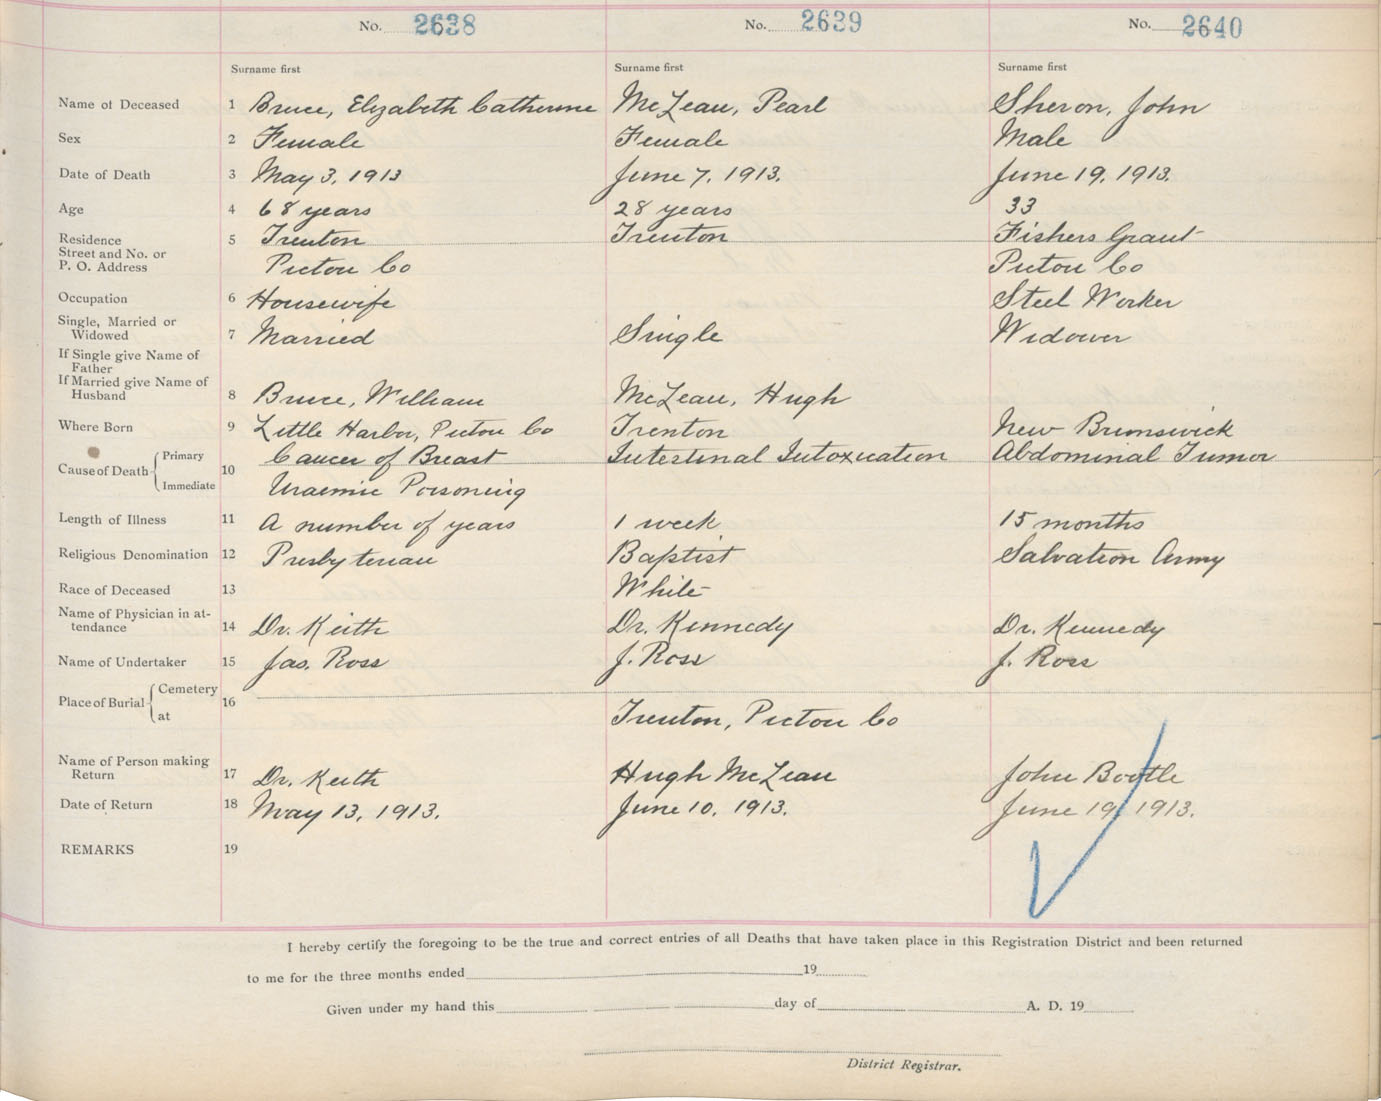 No. 2638 No. 2639 No. 2640
Surname first Surname first Surname first
Name of Deceased 1 Bruce, Elizabeth Catherine McLean, Pearl Sheron, John
Sex 2 Female Female Male
Date of Death 3 May 3, 1913 June 7, 1913. June 19, 1913.
Age 4 68 years 28 years 33
Residence 5 Trenton Trenton Fishers Grant
Street and No. or
P. O. Address Pictou Co Pictou Co
Occupation 6 Housewife Steel Worker
Single, Married or
Widowed 7 Married Single Widower
If Single give Name of
Father
If Married give Name of
Husband 8 Bruce, William McLean, Hugh
Where Born 9 Little Harbor, Pictou Co Trenton New Brunswick
Cause of Death Primary 10 Cancer of Breast Intestinal Intoxication Abdominal Tumor
Immediate Uraemic Poisoning
Length of Illness 11 A number of years 1 week 15 months
Religious Denomination 12 Presbyterian Baptist Salvation Army
Race of Deceased 13 White
Name of Physician in at-
tendance 14 Dr. Keith Dr. Kennedy Dr. Kennedy
Name of Undertaker 15 Jas. Ross J. Ross J. Ross
Place of Burial Cemetery 16
at Trenton, Pictou Co
Name of Person making
Return 17 Dr. Keith Hugh McLean John Bootle
Date of Return 18 May 13, 1913. June 10, 1913. June 19, 1913.
REMARKS 19
I hereby certify the foregoing to be the true and correct entries of all Deaths that have taken place in this Registration District and been returned
to me for the three months ended 19
Given under my hand this day of A. D. 19
District Registrar.